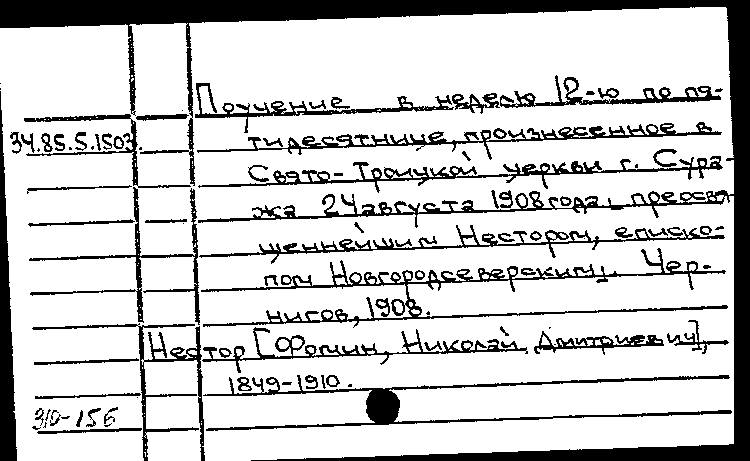 Поучение в неделю 12-ю по пя-
34.85.5.1503. тидесятнице, произнесенное в
Свято-Троицкой церкви г. Сура-
жа 24 августа 1908 года, преосвя-
щеннейшим Нестором, еписко-
пом Новгородсеверским. Чер-
нигов, 1908.
Нестор [Фомин, Николай Дмитриевич],
1849-1910.
310-156